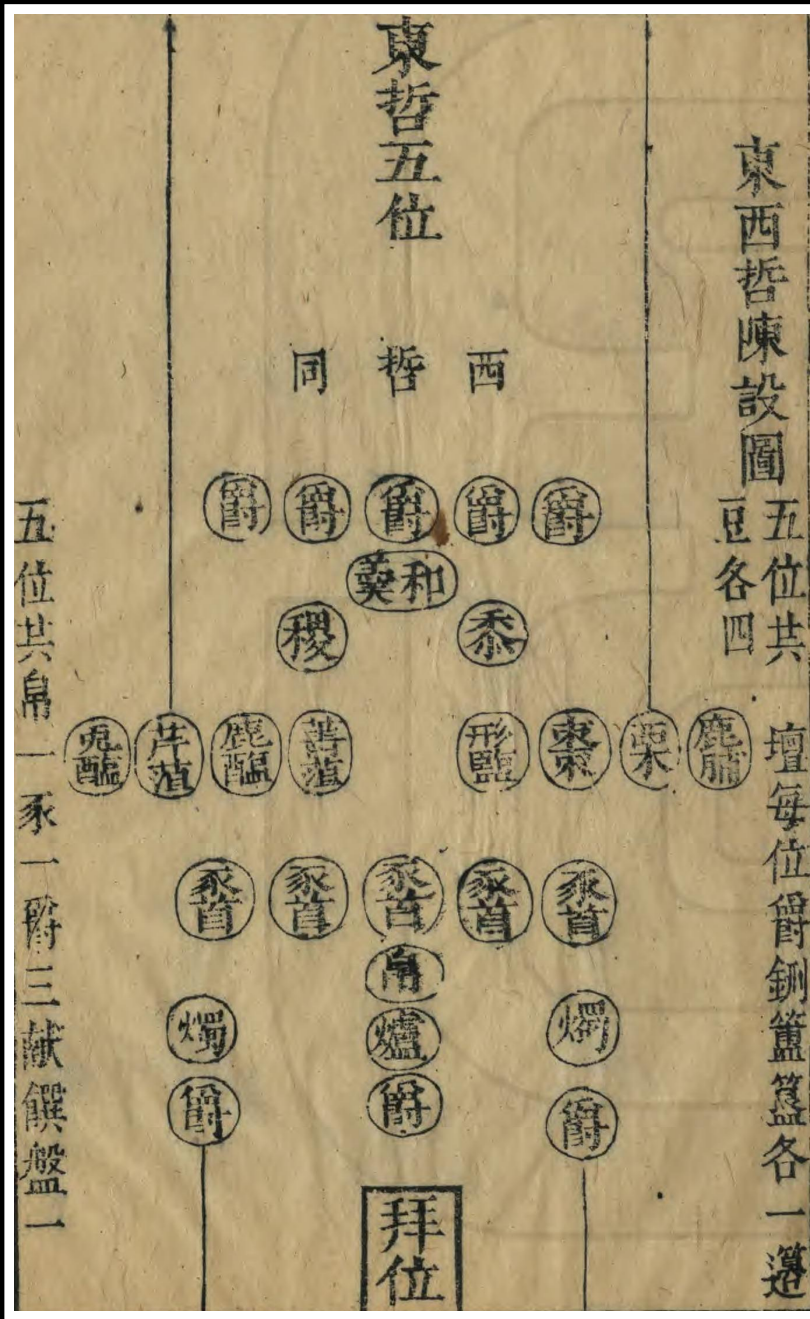 東西哲陳設圖
五位共
壇每位爵鉶簠簋各一籩
豆各四
東哲五位
西哲同
爵 爵 爵 爵 爵
和羹
黍 稷
鹿脯 栗 棗 形鹽 菁菹 鹿醢 芹菹 兎醢
豕首 豕首 豕首 豕首 豕首
帛
燭 爐 燭
爵 爵 爵
拜位
五位共帛一豕一爵三献饌盤一